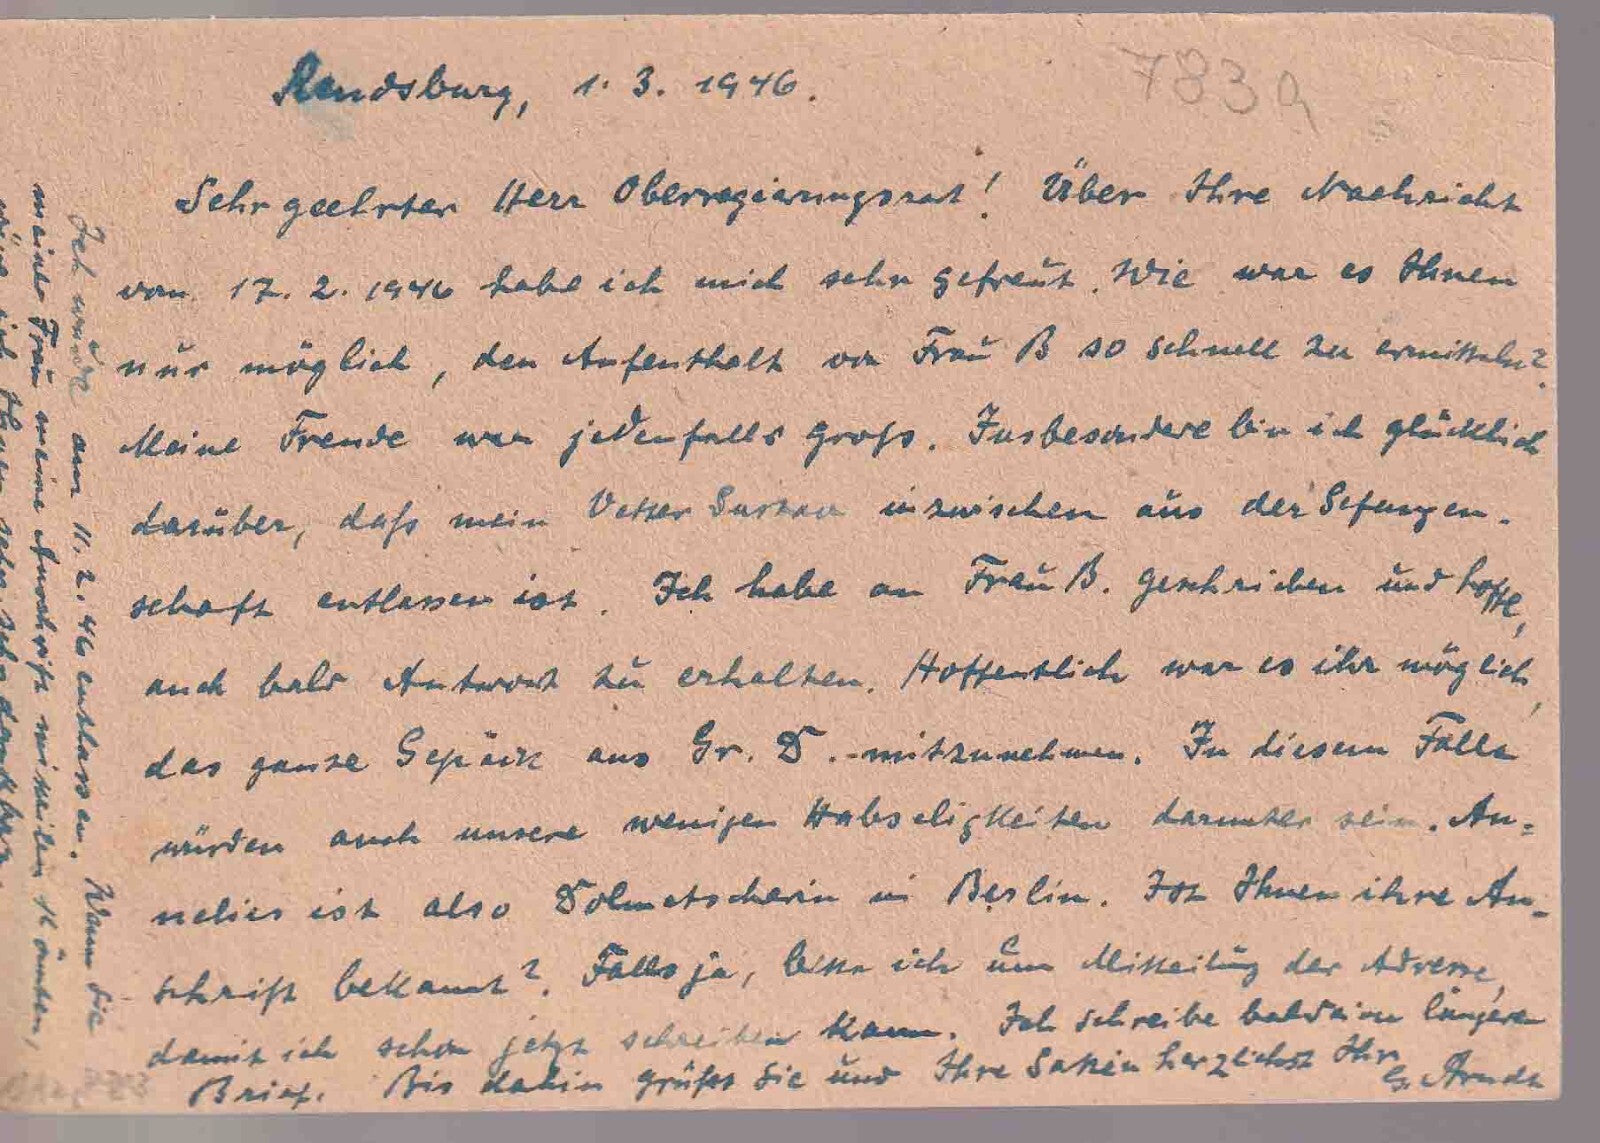 Rendsburg, 1. 3. 1946.
783a
Sehr geehrter Herr Oberregierungsrat! Über Ihre Nachricht
vom 17. 2. 1946 habe ich mich sehr gefreut. Wie war es Ihnen
nur möglich, den Aufenthalt von Frau B so schnell zu ermitteln?
Meine Freude war jedenfalls groß. Insbesondere bin ich glücklich
darüber, daß mein Vetter inzwischen aus der Gefangen-
schaft entlassen ist. Ich habe an Frau B. geschrieben und hoffe,
auch bald Antwort zu erhalten. Hoffentlich war es ihr möglich,
das ganze Gepäck aus Gr. D. mitzunehmen. In diesem Falle
würden auch unsere wenigen Habseligkeiten darunter sein. An-
nelies ist also Dolmetscherin in Berlin. Ist Ihnen ihre An-
schrift bekannt? Falls ja, bitte ich um Mitteilung der Adresse,
damit ich schon jetzt schreiben kann. Ich schreibe bald einen längeren
Brief. Bis dahin grüßt Sie und Ihre Gattin herzlichst Ihr
G. Arndt
Ich wurde am 11. 2. 46 entlassen. Wenn Sie
meiner Frau meine Anschrift mitteilen könnten,
wäre ich Ihnen sehr, sehr dankbar.